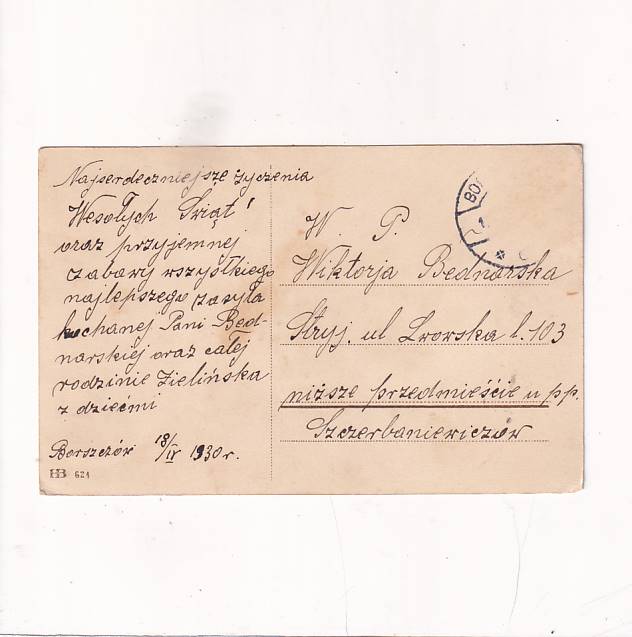 Najserdeczniejsze życzenia
Wesołych Świąt!
oraz przyjemnej
zabawy wszystkiego
najlepszego zasyła
kochanej Pani Bed-
narskiej oraz całej
rodzinie Zielińska
z dziećmi
Borszczów 18/IV 1930 r.
HB 624
W. P.
Wiktorja Bednarska
Stryj. ul Lwowska l. 103
niższe przedmieście u pp.
Szczerbaniewiczów